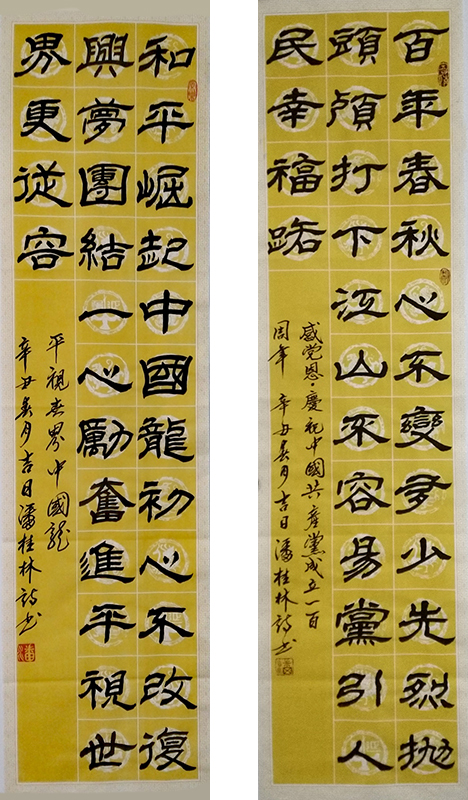 百年春秋心不變多少先烈抛
頭顱打下江山來容易黨引人
民幸福路
感党恩·慶祝中國共產黨成立一百
周年 辛丑春月吉日潘桂林诗书
和平崛起中國龍初心不改復
興夢團結一心勵奮進平視世
界更從容
平視世界中國龍
辛丑春月吉日潘桂林诗书